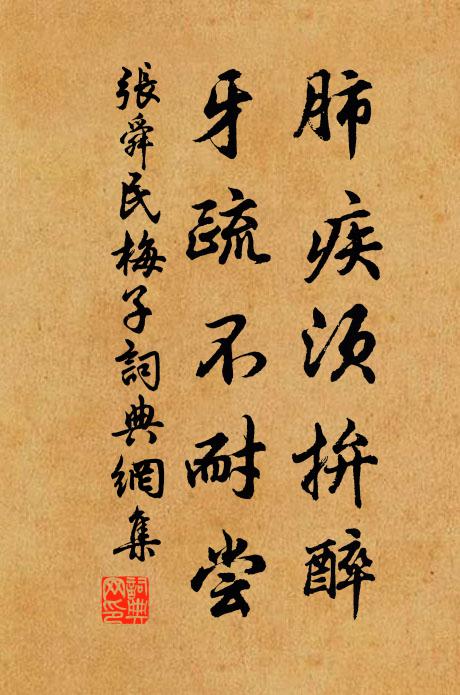 肺疾须拚醉
牙疏不耐尝
張舜民梅子詞典網集
詞典網印